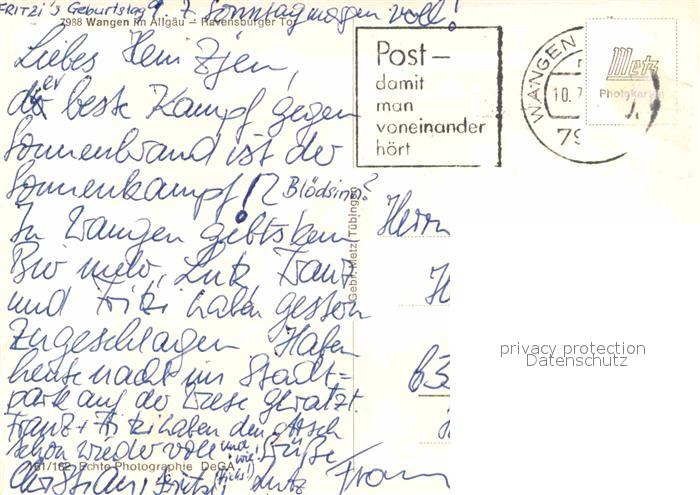 FRITZI's Geburtstag 9.7. Sonntagmorgen voll!
7988 Wangen im Allgäu – Ravensburger Tor
Liebes Heinzjen,
der beste Kampf gegen
Sonnenbrand ist der
Sonnenkampf! Blödsinn?
In Wangen gibts kein
Bier mehr, Lutz Franz
und Fritzi haben gestern
zugeschlagen. Haben
heute nacht im Stadt=
park auf der Wiese geratzt.
Franz + Fritzi haben den Arsch
schon wieder voll und wie! Grüße
161/162 Echte Photographie DeGA
Christian, Fritzi, (hicks!) Lutz Franz
Gebr. Metz, Tübingen
Post –
damit
man
voneinander
hört
WANGEN
10.7
79
Metz
Photokarten
Herrn
H
63
privacy protection
Datenschutz